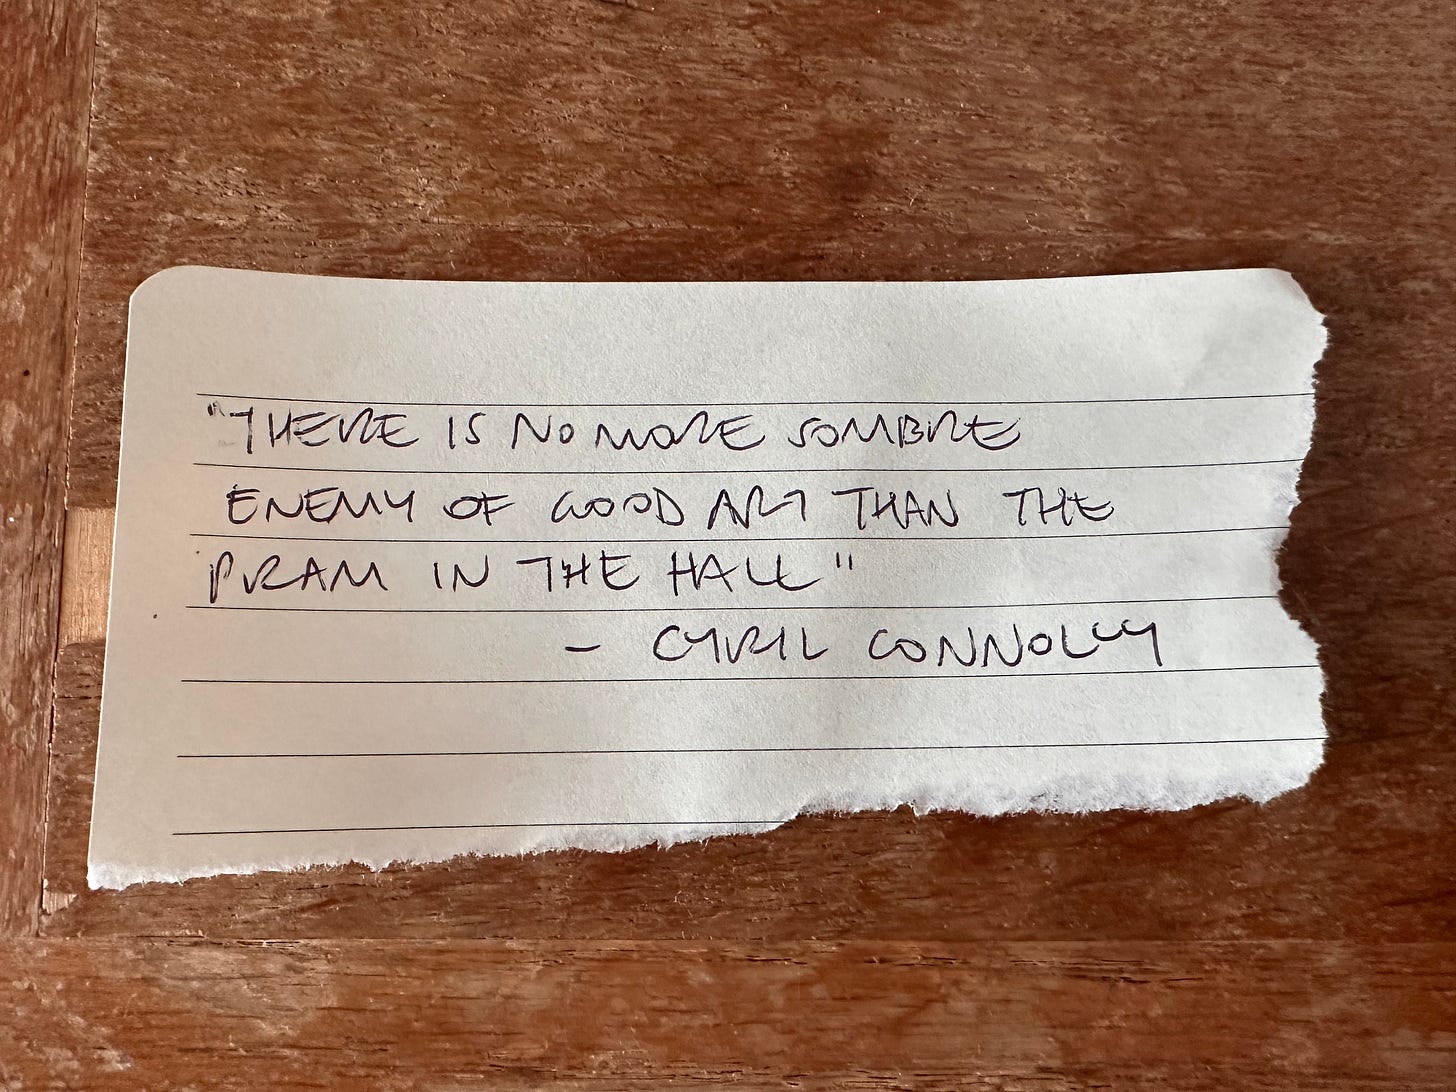 "THERE IS NO MORE SOMBRE
ENEMY OF GOOD ART THAN THE
PRAM IN THE HALL"
- CYRIL CONNOLLY